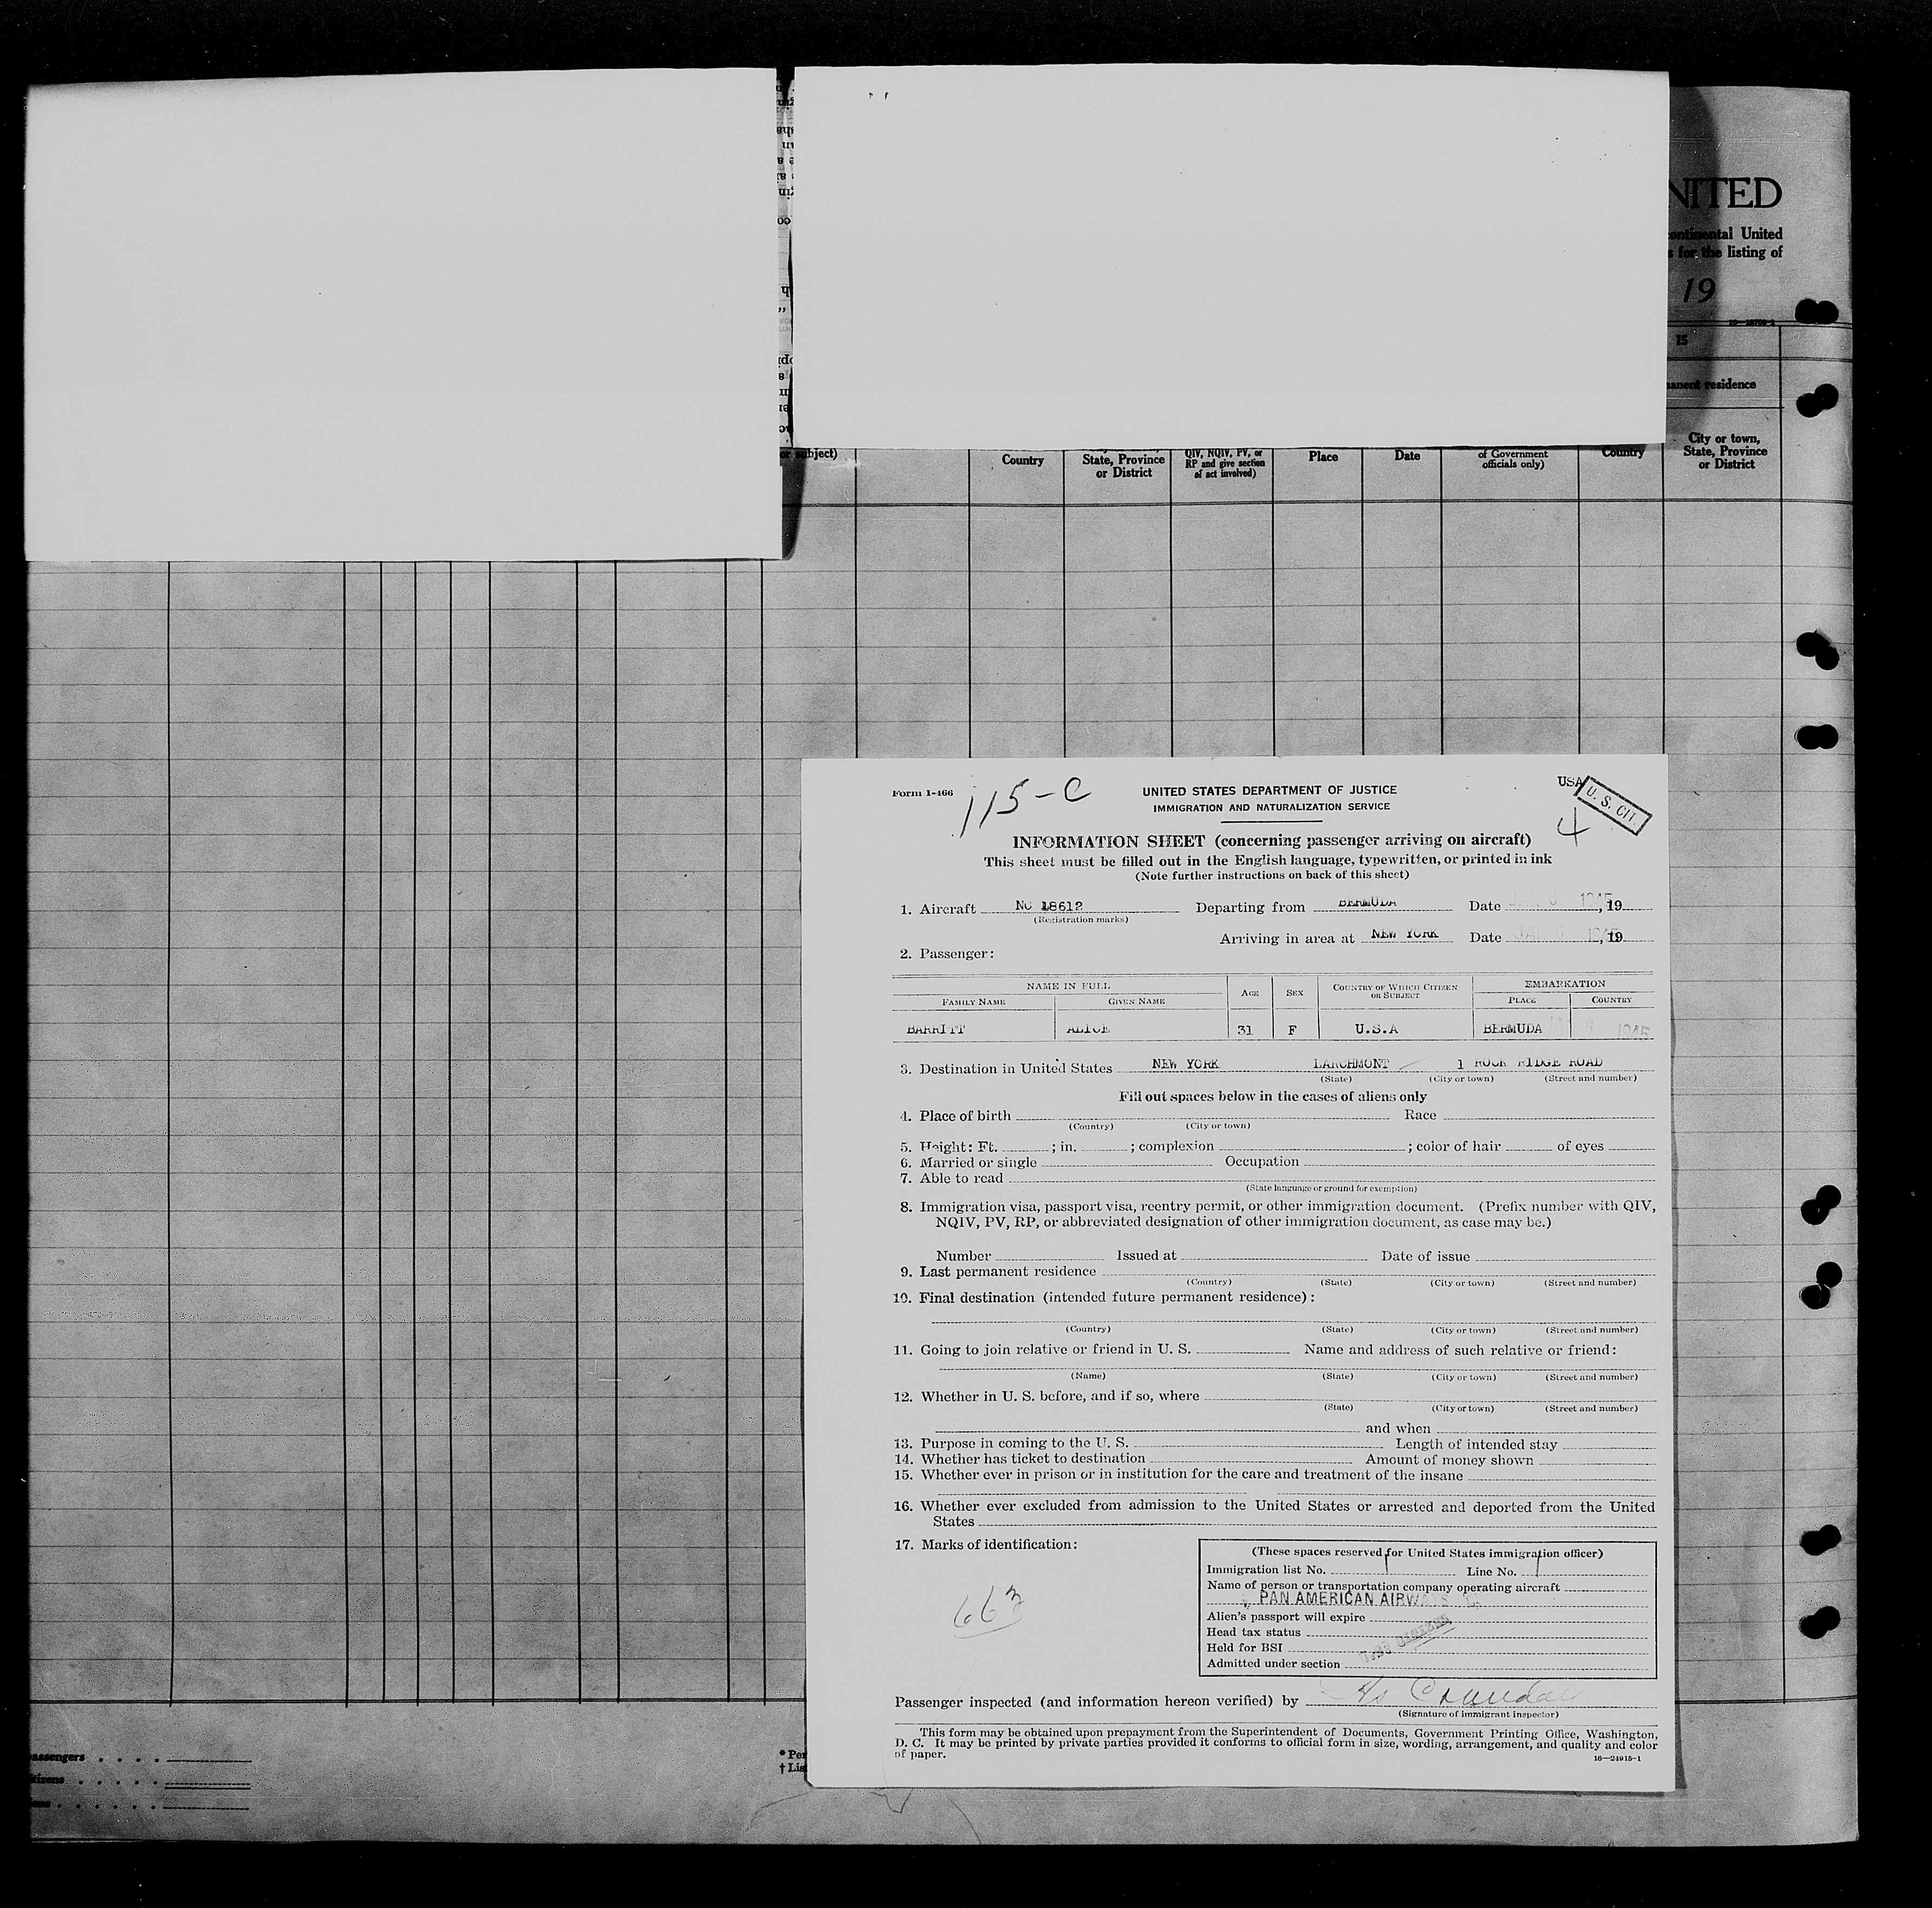 NITED
continental United
s for the listing of
19
15
manent residence
or subject)
Country
State, Province
or District
QIV, NQIV, PV, or
RP and give section
of act involved)
Place
Date
of Government
officials only)
Country
City or town,
State, Province
or District
Form I-466
115-C
UNITED STATES DEPARTMENT OF JUSTICE
IMMIGRATION AND NATURALIZATION SERVICE
USA
U. S. CIT.
4
INFORMATION SHEET (concerning passenger arriving on aircraft)
This sheet must be filled out in the English language, typewritten, or printed in ink
(Note further instructions on back of this sheet)
1. Aircraft NC 18612 Departing from BERMUDA Date 1945, 19
(Registration marks)
Arriving in area at NEW YORK Date JAN 1945, 19
2. Passenger:
NAME IN FULL
FAMILY NAME
GIVEN NAME
AGE
SEX
COUNTRY OF WHICH CITIZEN
OR SUBJECT
EMBARKATION
PLACE
COUNTRY
BARRITT ALICE 31 F U.S.A BERMUDA 6 1945
3. Destination in United States NEW YORK LARCHMONT 1 ROCK RIDGE ROAD
(State) (City or town) (Street and number)
Fill out spaces below in the cases of aliens only
4. Place of birth Race
(Country) (City or town)
5. Height: Ft. ; in. ; complexion ; color of hair of eyes
6. Married or single Occupation
7. Able to read
(State language or ground for exemption)
8. Immigration visa, passport visa, reentry permit, or other immigration document. (Prefix number with QIV,
NQIV, PV, RP, or abbreviated designation of other immigration document, as case may be.)
Number Issued at Date of issue
9. Last permanent residence
(Country) (State) (City or town) (Street and number)
10. Final destination (intended future permanent residence):
(Country) (State) (City or town) (Street and number)
11. Going to join relative or friend in U. S. Name and address of such relative or friend:
(Name) (State) (City or town) (Street and number)
12. Whether in U. S. before, and if so, where
(State) (City or town) (Street and number)
and when
13. Purpose in coming to the U. S. Length of intended stay
14. Whether has ticket to destination Amount of money shown
15. Whether ever in prison or in institution for the care and treatment of the insane
16. Whether ever excluded from admission to the United States or arrested and deported from the United
States
17. Marks of identification:
663
(These spaces reserved for United States immigration officer)
Immigration list No. 1 Line No. 1
Name of person or transportation company operating aircraft
PAN AMERICAN AIRWAYS
Alien's passport will expire
Head tax status
Held for BSI
CITIZEN
Admitted under section
Passenger inspected (and information hereon verified) by
(Signature of immigrant inspector)
This form may be obtained upon prepayment from the Superintendent of Documents, Government Printing Office, Washington,
D. C. It may be printed by private parties provided it conforms to official form in size, wording, arrangement, and quality and color
of paper.
16—24915-1
passengers . . . .
* Per
† Lis